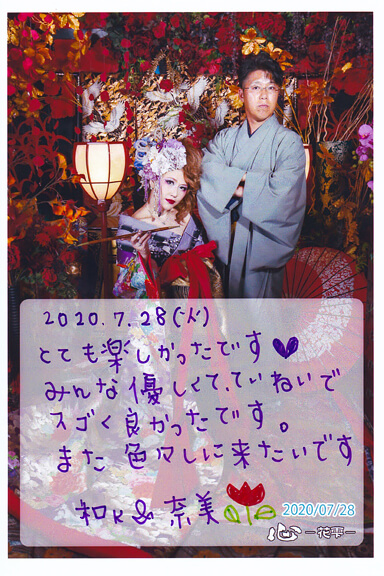 2020.7.28(火)
とても楽しかったです
みんな優しくて、ていねいで
スゴく良かったです。
また 色々しに来たいです
和K&奈美
2020/07/28
心 −花雫−